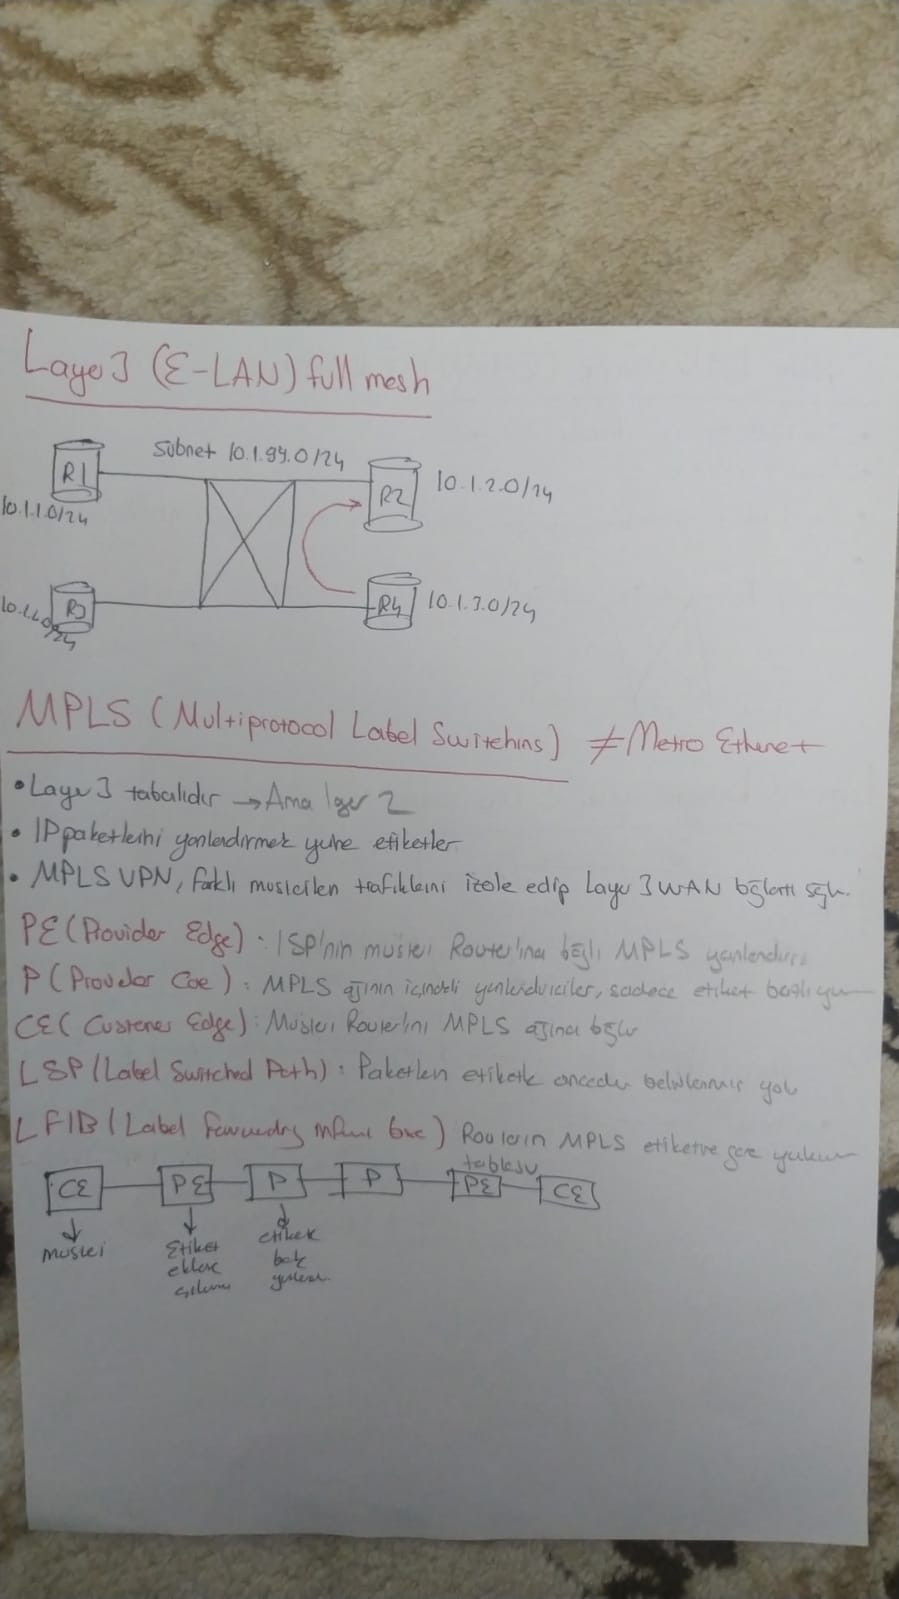 Layer 3 (E-LAN) full mesh
Subnet 10.1.99.0/24
R1
R2
10.1.2.0/24
10.1.1.0/24
R3
R4
10.1.3.0/24
MPLS (Multiprotocol Label Switching) ≠ Metro Ethernet
• Layer 3 tabalıdır → Ama layer 2
• IP paketlerini yönlendirmek yerine etiketler
• MPLS VPN, farklı müşterilen trafiklerini izole edip Layer 3 WAN bağlantı sağlar.
PE (Provider Edge) : ISP'nin müşteri Router'ına bağlı MPLS yönlendirici
P (Provider Core) : MPLS ağının içindeki yönlendiriciler, sadece etiket
CE (Customer Edge) : Müşteri Router'ını MPLS ağına bağlar
LSP (Label Switched Path) : Paketlerin etiketle önceden belirlenmiş yolu
LFIB (Label Forwarding Inform base) Routerın MPLS etiketine göre
tablosu
CE PE P P PE CE
müşteri
Etiket
ekleme
etiket